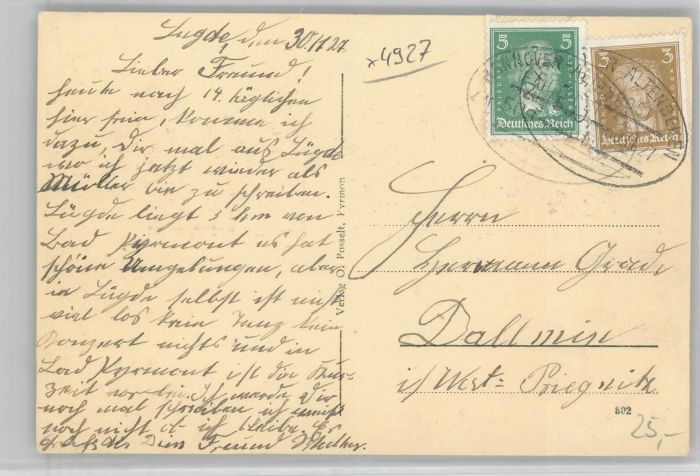 Lügde, den 30.11.27
Lieber Freund!
Heute nach 14. täglichen
hier sein, komme ich
dazu, Dir mal aus Lügde
wo ich jetzt wieder als
Müller bin zu schreiben.
Lügde liegt 5 km von
Bad Pyrmont es hat
schöne Umgebungen, aber
in Lügde selbst ist nicht
viel los kein Tanz kein
Konzert nichts und in
Bad Pyrmont ist die Kur-
zeit vorbei. Ich werde Dir
noch mal schreiben ich weiß
noch nicht ob ich bleibe. Es
grüßt Dein Freund
x4927
5 5
Deutsches Reich
3 3
Deutsches Reich
HANNOVER ALTENBEKEN
Verlag O. Posselt, Pyrmont
Herrn
Hermann Grade
Dallmin
i/ West-Priegnitz
892
25,-